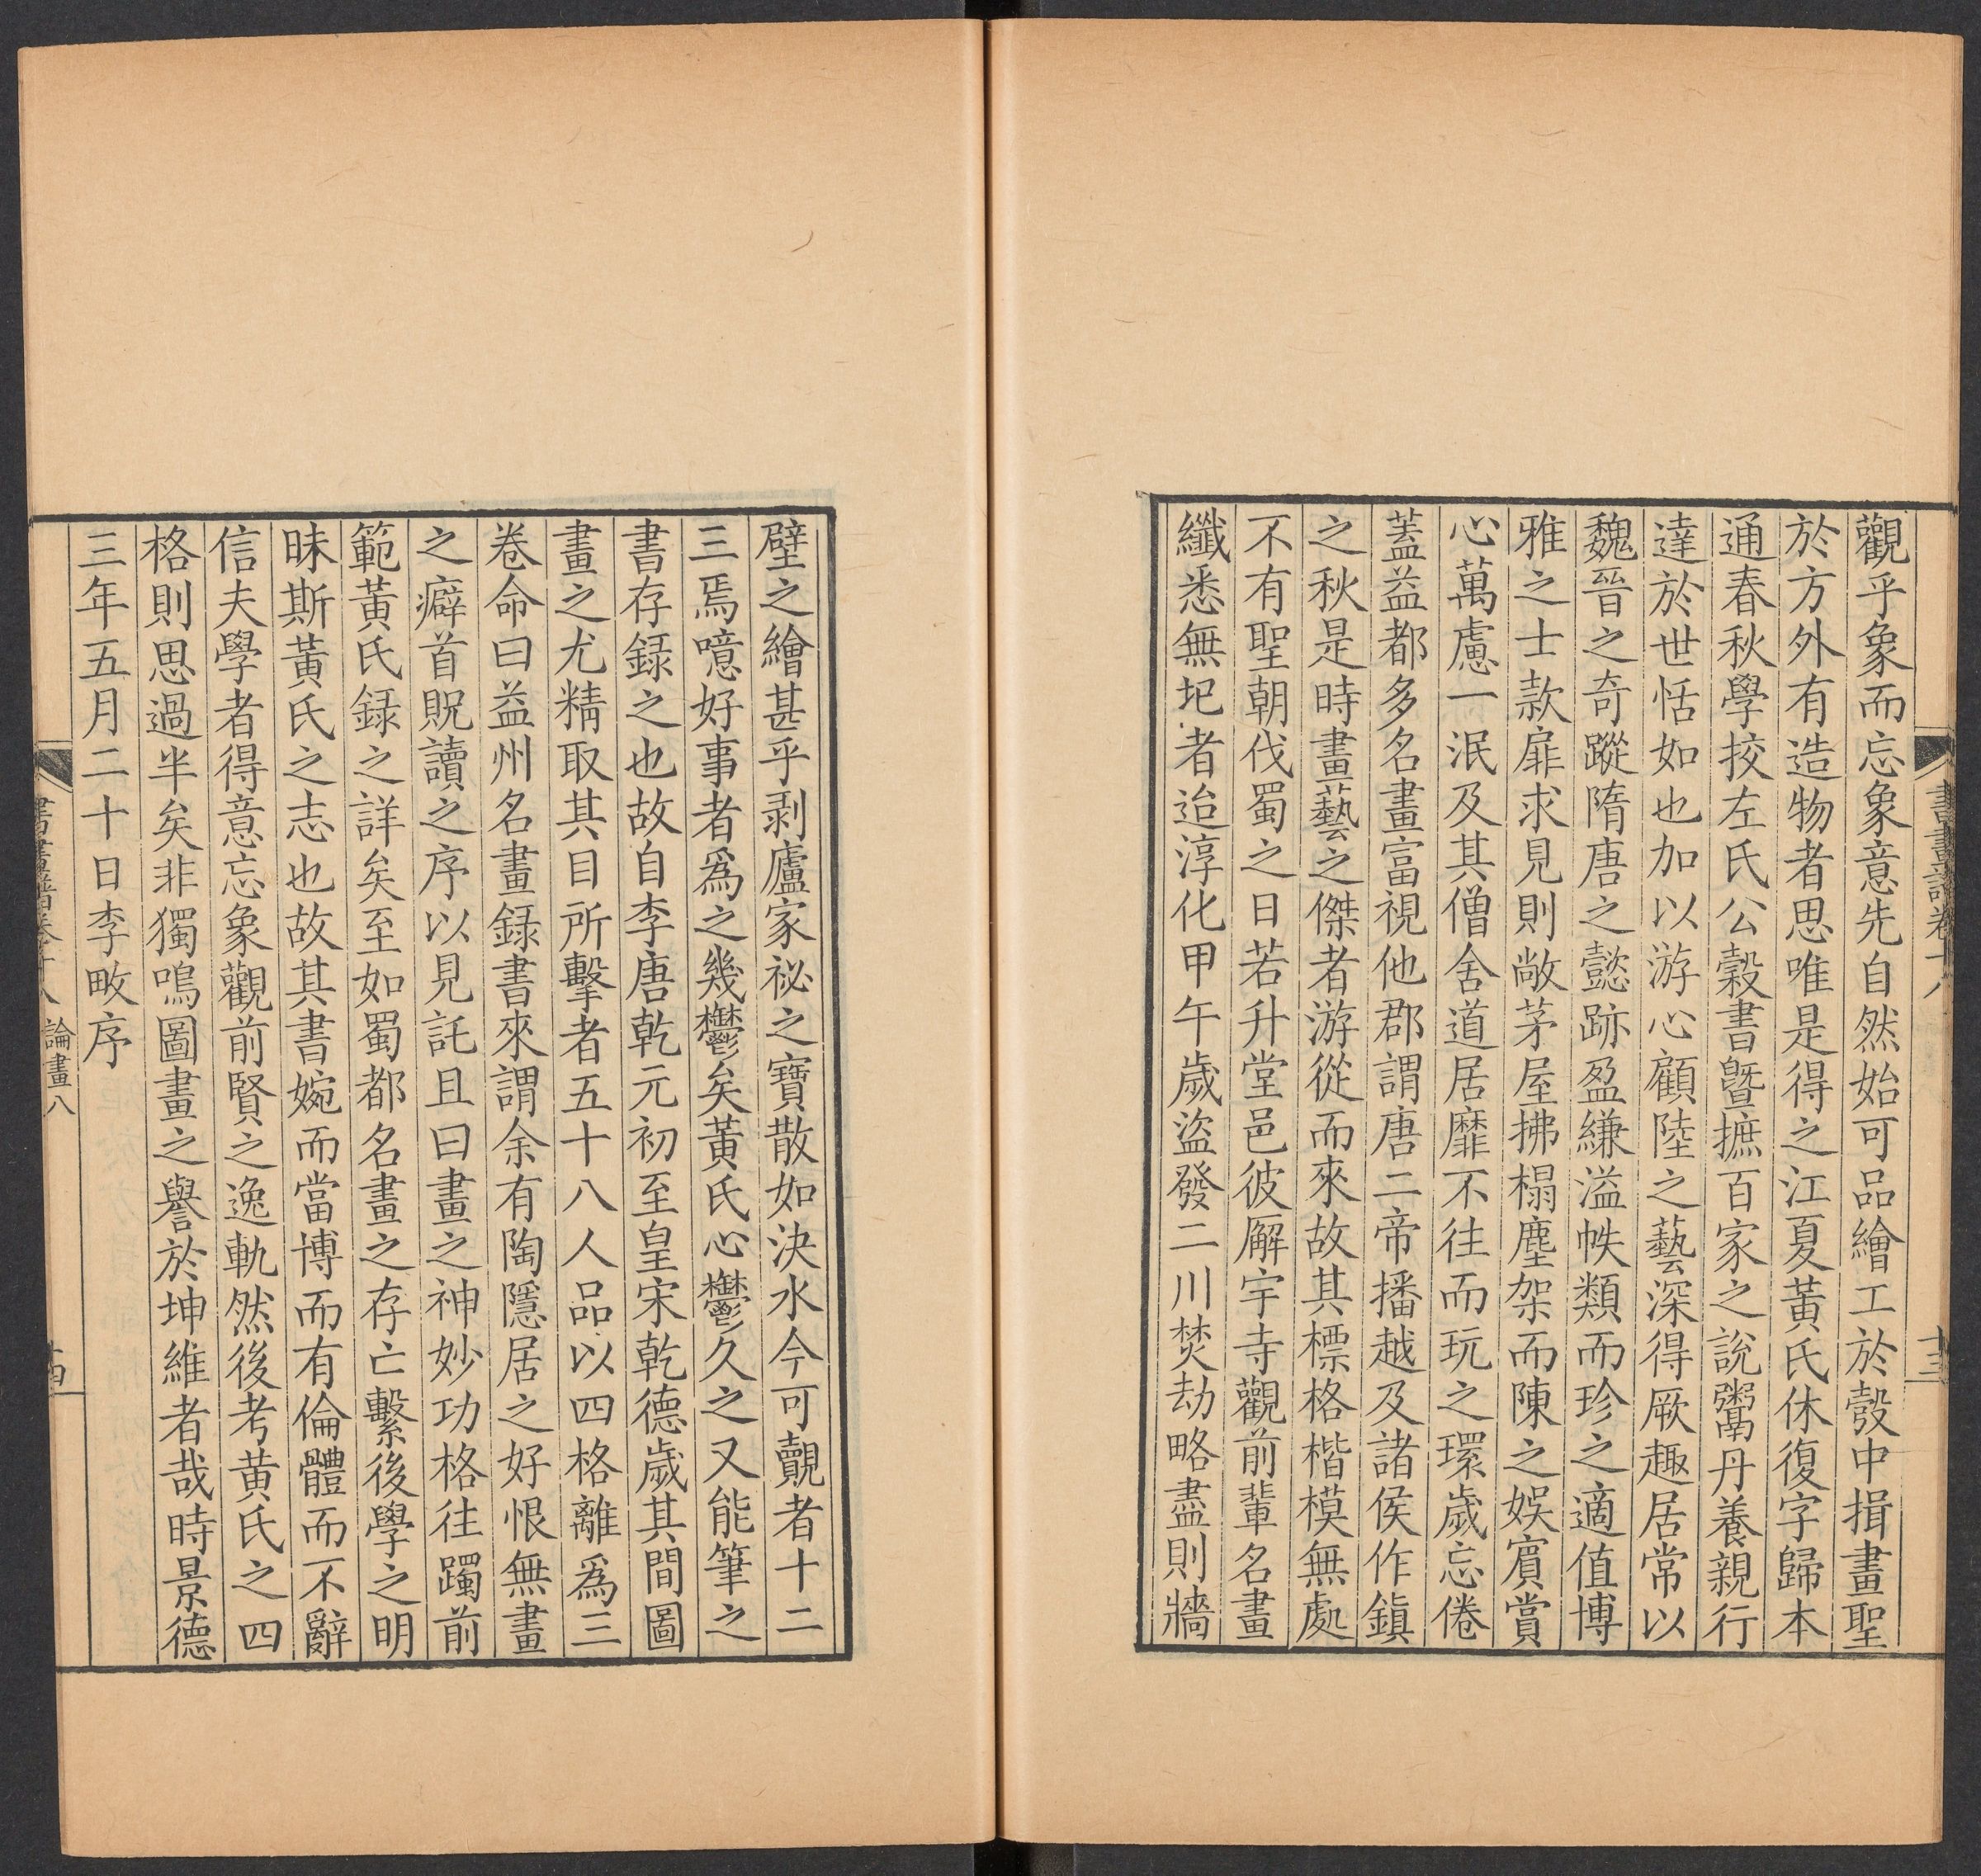 觀乎象而忘象意先自然始可品繪工於彀中揖畫聖
於方外有造物者思唯是得之江夏黃氏休復字歸本
通春秋學挍左氏公糓書曁摭百家之說鬻丹養親行
達於世恬如也加以游心顧陸之藝深得厥趣居常以
魏晉之奇蹤隋唐之懿跡盈縑溢帙類而珍之適值博
雅之士款扉求見則敞茅屋拂榻塵架而陳之娛賓賞
心萬慮一泯及其僧舍道居靡不往而玩之環歲忘倦
蓋益都多名畫富視他郡謂唐二帝播越及諸侯作鎮
之秋是時畫藝之傑者游從而來故其標格楷模無處
不有聖朝伐蜀之日若升堂邑彼廨宇寺觀前輩名畫
纖悉無圮者迨淳化甲午歲盜發二川焚劫略盡則牆
書畫譜卷十八
十三
壁之繪甚乎剥廬家祕之寶散如決水今可覿者十二
三焉噫好事者爲之幾鬱矣黃氏心鬱久之又能筆之
書存録之也故自李唐乾元初至皇宋乾德歲其間圖
畫之尤精取其目所擊者五十八人品以四格離爲三
卷命曰益州名畫録書來謂余有陶隱居之好恨無畫
之癖首貺讀之序以見託且曰畫之神妙功格往躅前
範黃氏録之詳矣至如蜀都名畫之存亡繫後學之明
昧斯黃氏之志也故其書婉而當博而有倫體而不辭
信夫學者得意忘象觀前賢之逸軌然後考黄氏之四
格則思過半矣非獨鳴圖畫之譽於坤維者哉時景德
三年五月二十日李畋序
書畫譜卷十八 論畫八
十四